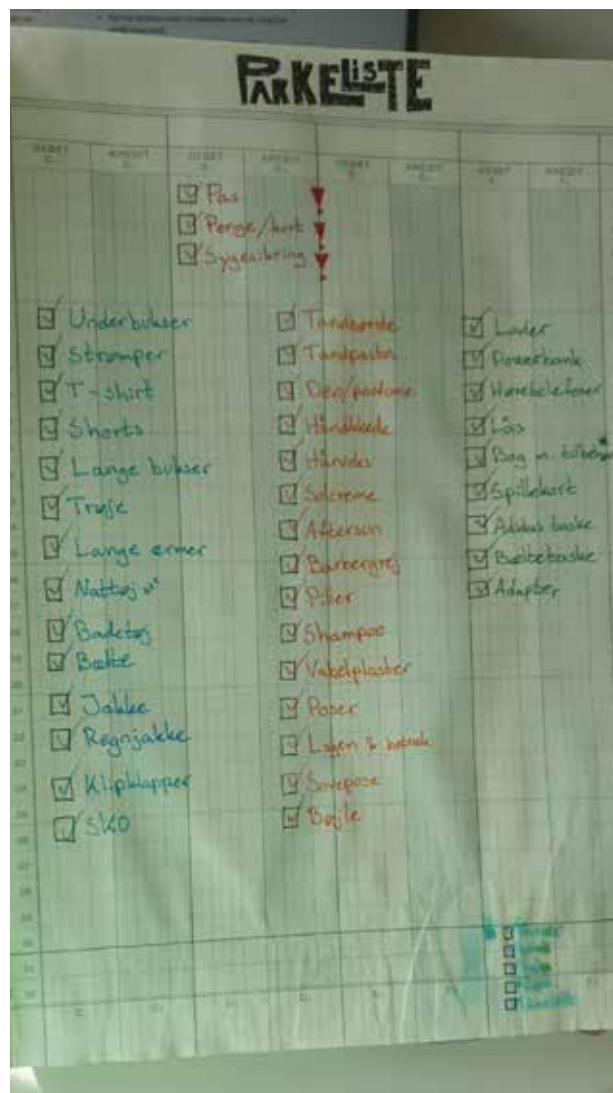 PAKKELISTE
DEBET KREDIT DEBET KREDIT DEBET KREDIT DEBET KREDIT
Pas
Penge/kort
Sygesikring
Underbukser
Strømper
T-shirt
Shorts
Lange bukser
Trøje
Lange ermer
Nattøj
Badetøj
Bælte
Jakke
Regnjakke
Klipklapper
SKO
Tandbørste
Tandpasta
Deo/parfume
Håndklæde
Hårvoks
Solcreme
Aftersun
Barbergrej
Piller
Shampoo
Vabelplaster
Poser
Lagen &
Sovepose
Bøjle
Lader
Powerbank
Høretelefoner
Lås
Bog m.
Spillekort
Adidas taske
Bæltetaske
Adapter